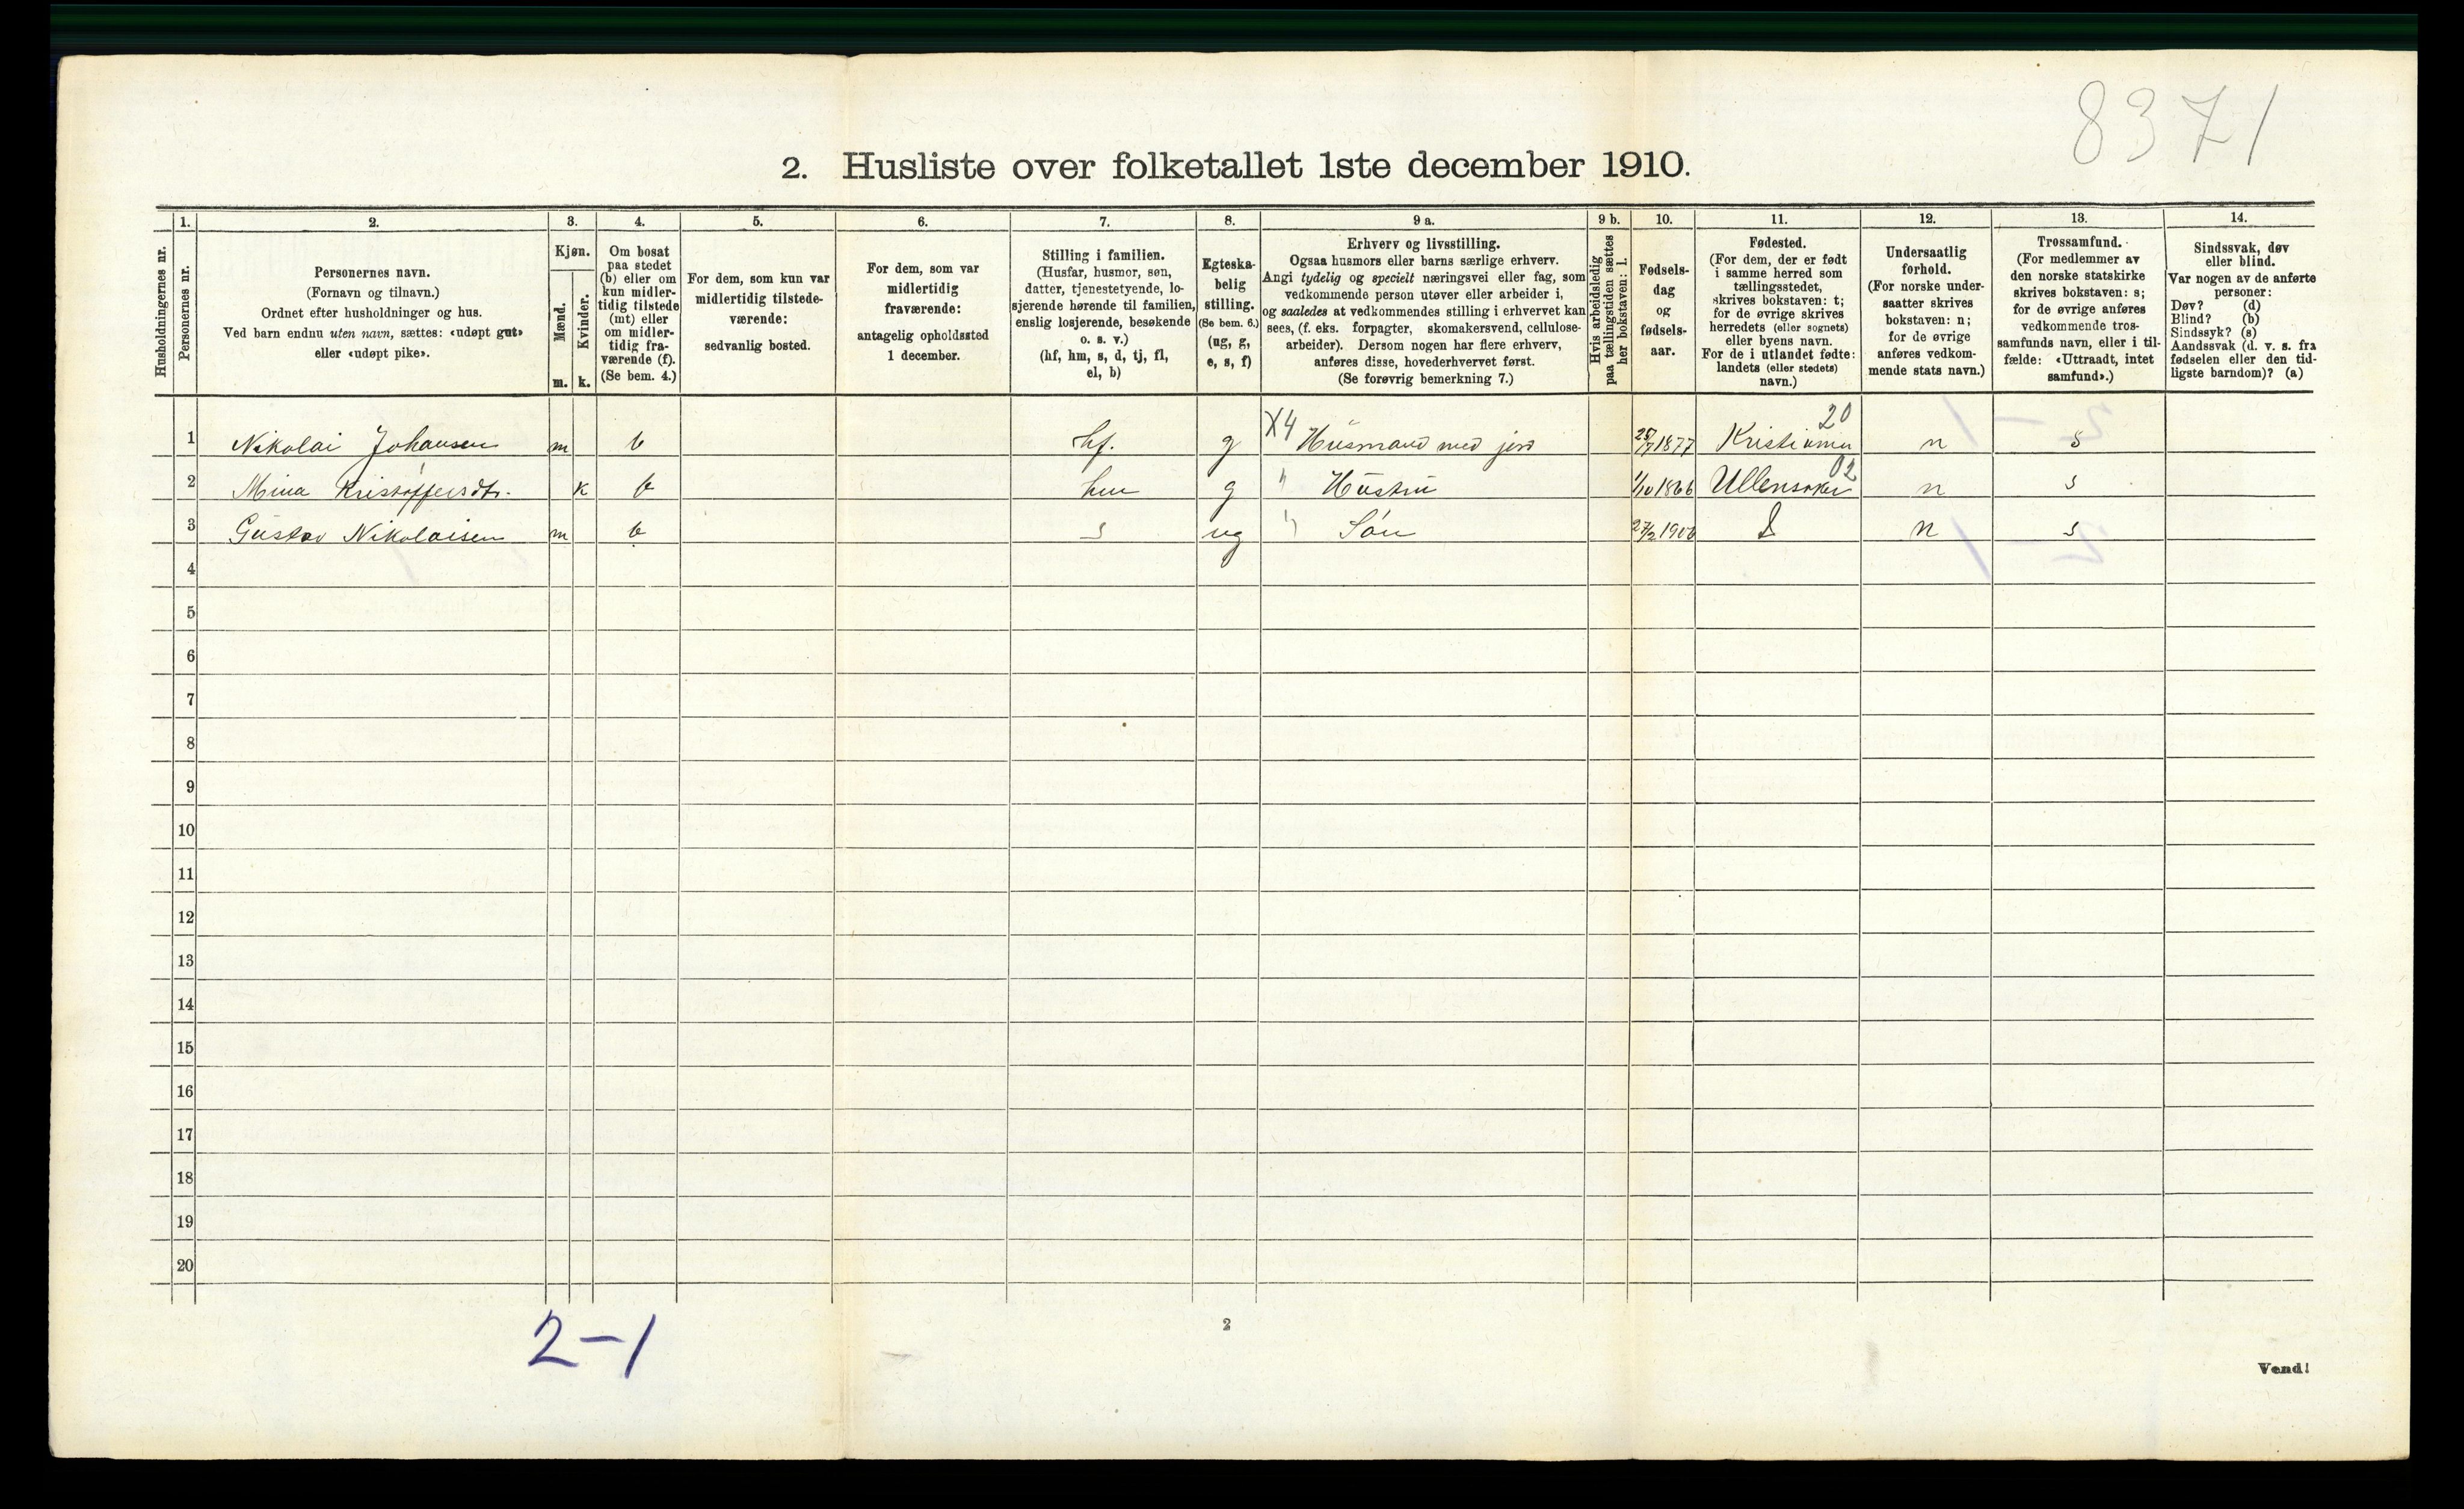 8371
2. Husliste over folketallet 1ste december 1910.
Husholdningernes nr.
1.
Personernes nr.
2.
Personernes navn.
(Fornavn og tilnavn.)
Ordnet efter husholdninger og hus.
Ved barn endnu uten navn, sættes: «udøpt gut»
eller «udøpt pike».
3.
Kjøn.
Mænd.
Kvinder.
m. k.
4.
Om bosat
paa stedet
(b) eller om
kun midler-
tidig tilstede
(mt) eller
om midler-
tidig fra-
værende (f).
(Se bem. 4.)
5.
For dem, som kun var
midlertidig tilstede-
værende:
sedvanlig bosted.
6.
For dem, som var
midlertidig
fraværende:
antagelig opholdssted
1 december.
7.
Stilling i familien.
(Husfar, husmor, søn,
datter, tjenestetyende, lo-
sjerende hørende til familien,
enslig losjerende, besøkende
o. s. v.)
(hf, hm, s, d, tj, fl,
el, b)
8.
Egteska-
belig
stilling.
(Se bem. 6.)
(ug, g,
e, s, f)
9 a.
Erhverv og livsstilling.
Ogsaa husmors eller barns særlige erhverv.
Angi tydelig og specielt næringsvei eller fag, som
vedkommende person utøver eller arbeider i,
og saaledes at vedkommendes stilling i erhvervet kan
sees, (f. eks. forpagter, skomakersvend, cellulose-
arbeider). Dersom nogen har flere erhverv,
anføres disse, hovederhvervet først.
(Se forøvrig bemerkning 7.)
9 b.
Hvis arbeidsledig
paa tællingstiden sættes
her bokstaven: l.
10.
Fødsels-
dag
og
fødsels-
aar.
11.
Fødested.
(For dem, der er født
i samme herred som
tællingsstedet,
skrives bokstaven: t;
for de øvrige skrives
herredets (eller sognets)
eller byens navn.
For de i utlandet fødte:
landets (eller stedets)
navn.)
12.
Undersaatlig
forhold.
(For norske under-
saatter skrives
bokstaven: n;
for de øvrige
anføres vedkom-
mende stats navn.)
13.
Trossamfund.
(For medlemmer av
den norske statskirke
skrives bokstaven: s;
for de øvrige anføres
vedkommende tros-
samfunds navn, eller i til-
fælde: «Uttraadt, intet
samfund».)
14.
Sindssvak, døv
eller blind.
Var nogen av de anførte
personer:
Døv? (d)
Blind? (b)
Sindssyk? (s)
Aandssvak (d. v. s. fra
fødselen eller den tid-
ligste barndom)? (a)
1 Nikolai Johansen m b hf. g X4 Husmand med jord 25/7 1877 Kristiania 20 n s
2 Mina Kristoffersdtr. k b hm g " Hustru 1/10 1866 Ullensaker 02 n s
3 Gustav Nikolaisen m b s ug " Søn n s
4
5
6
7
8
9
10
11
12
13
14
15
16
17
18
19
20
2-1
2
Vend!